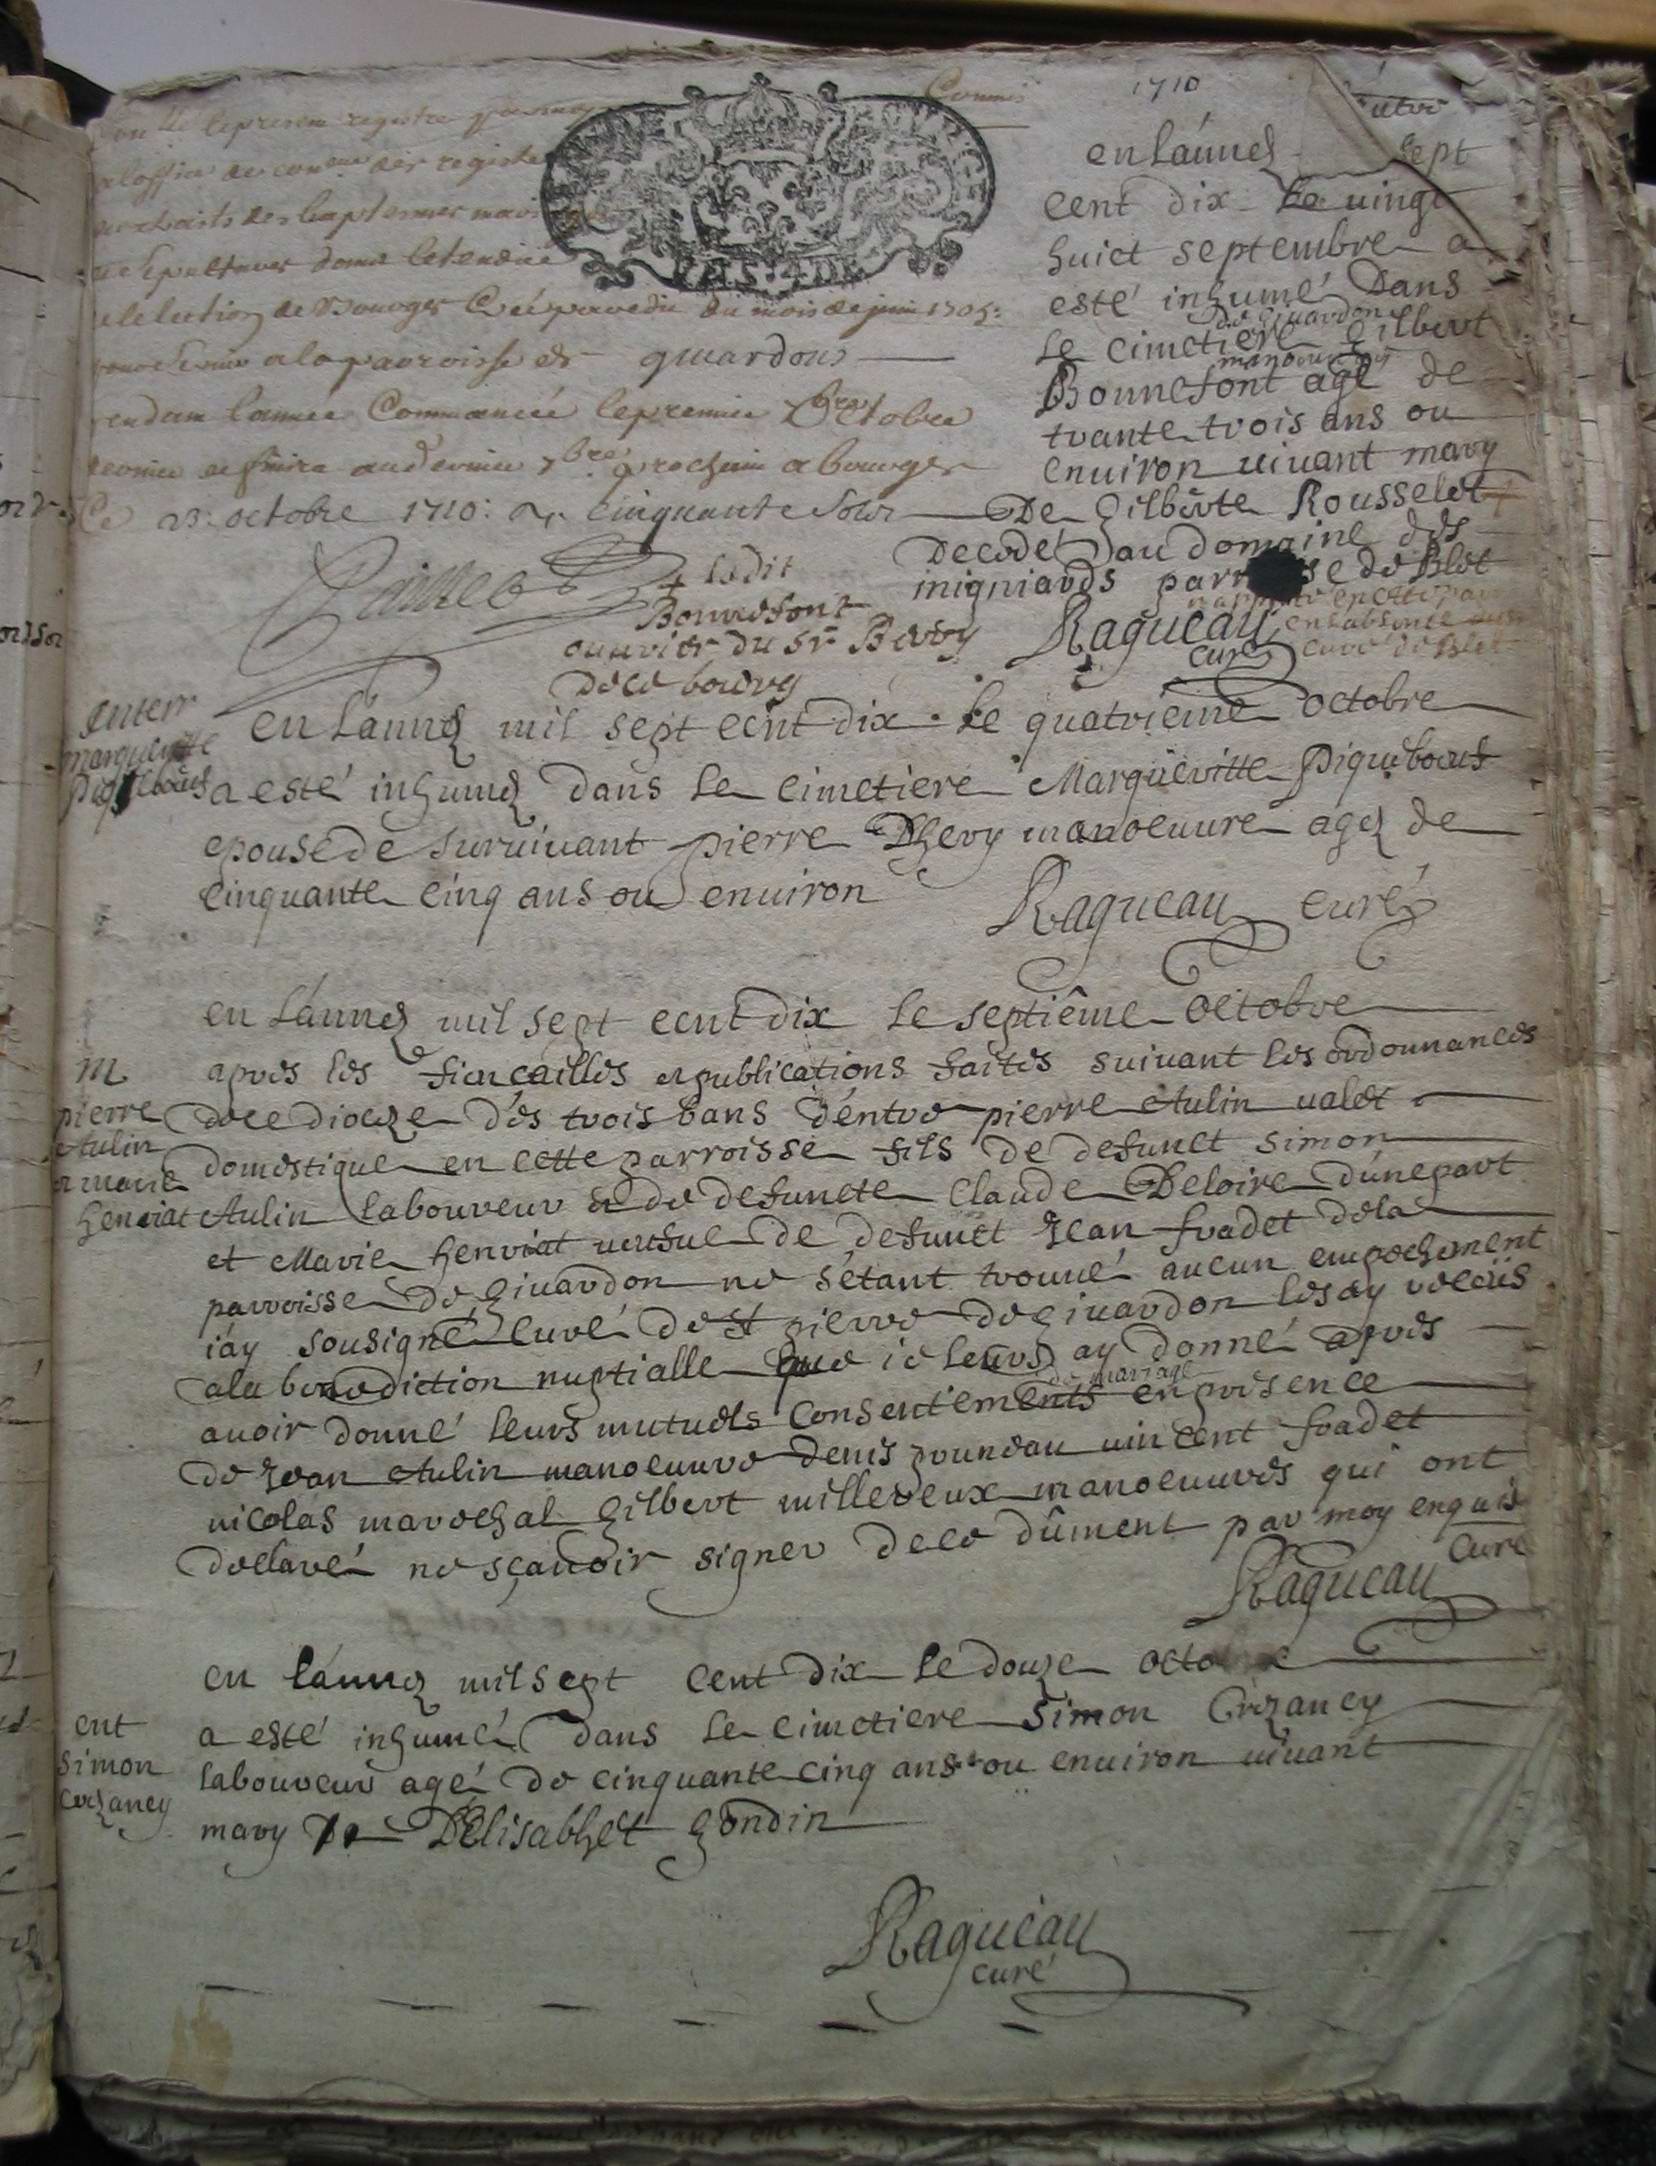 1710
Commis
le present registre
a loffice de des registres
extraits des baptesmes mariages
et Sepultures dans letendüe
de lelection de Bourges Créé par edit du mois de juin 1705:
pour servir a la parroisse de givardon
pendant lannée Commancée le premier octobre
dernier et finira au dernier 7bre prochain a bourges
Ce 23: octobre 1710: cinquante Sols
en lánneé sept
cent dix le uingt
huict septembre a
esté inhumé Dans
de givardon
le cimetiere Gilbert
manoeuvre
Bonnefont agé de
trante trois ans ou
enuiron uiuant mary
De Gilberte Rousselet
Decedé au domaine des
inigniards parroisse de Blet
apporté en cette par
en labsence du
curé de Blet
Ragueau
curé
+ ledit
Bonnefont
ouurier du Sr
de ce bourg
enterr
marguerite
piquebœus
en lánneé mil sept cent dix le quatrieme octobre
a esté inhumeé dans le cimetiere Marguerite Piquebœus
epouse de suruiuant pierre Dhery manoeuure ageé de
cinquante cinq ans ou enuiron
Ragueau curé
en lánneé mil sept cent dix le septiême octobre
M
pierre
Aulin
et marie
henriat
apres les fiençailles et publications faites suiuant les ordonnances
de ce dioceze des trois bans déntre pierre Aulin ualet
domestique en cette parroisse fils de defunct simon
Aulin laboureur et de defuncte Claude Deloire dúne part
et Marie henriat ueufue de defunct Jean fradet de la
parroisse de Givardon ne s'étant trouué aucun empechement
iáy sousigné curé de St pierre de givardon les ay receüs
a la benediction nuptialle que ie leurs ay donné apres
de mariage
auoir donné leurs mutuels consentements en presence
de Jean Aulin manoeuure denis uincent fradet
nicolas marechal gilbert millereux manoeuures qui ont
declaré ne sçauoir signer de ce dûment par moy enquis
Ragueau curé
en lánneé mil sept cent dix le douze octobre
ent
simon
a esté inhumé dans le cimetiere Simon
laboureur agé de cinquante cinq ans ou enuiron uiuant
mary D'Elisabhet gondin
Ragueau
curé